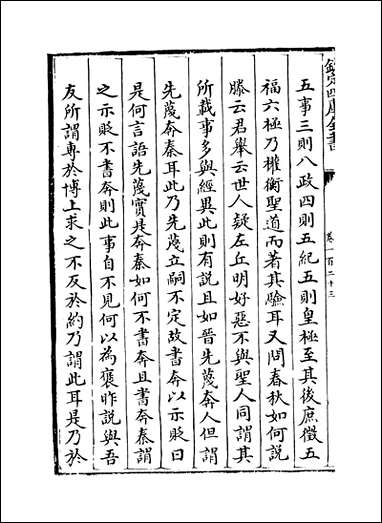 欽定四庫全書
卷一百二十三
五事三則八政四則五紀五則皇極至其後庶徵五
福六極乃權衡聖道而著其驗耳又問春秋如何說
滕云君舉云世人疑左丘明好惡不與聖人同謂其
所載事多與經異此則有說且如晉先蔑奔人但謂
先蔑奔秦耳此乃先蔑立嗣不定故書奔以示貶曰
是何言語先蔑實是奔秦如何不書奔且書奔秦謂
之示貶不書奔則此事自不見何以為褒昨說與吾
友所謂專於博上求之不反於約乃謂此耳是乃於